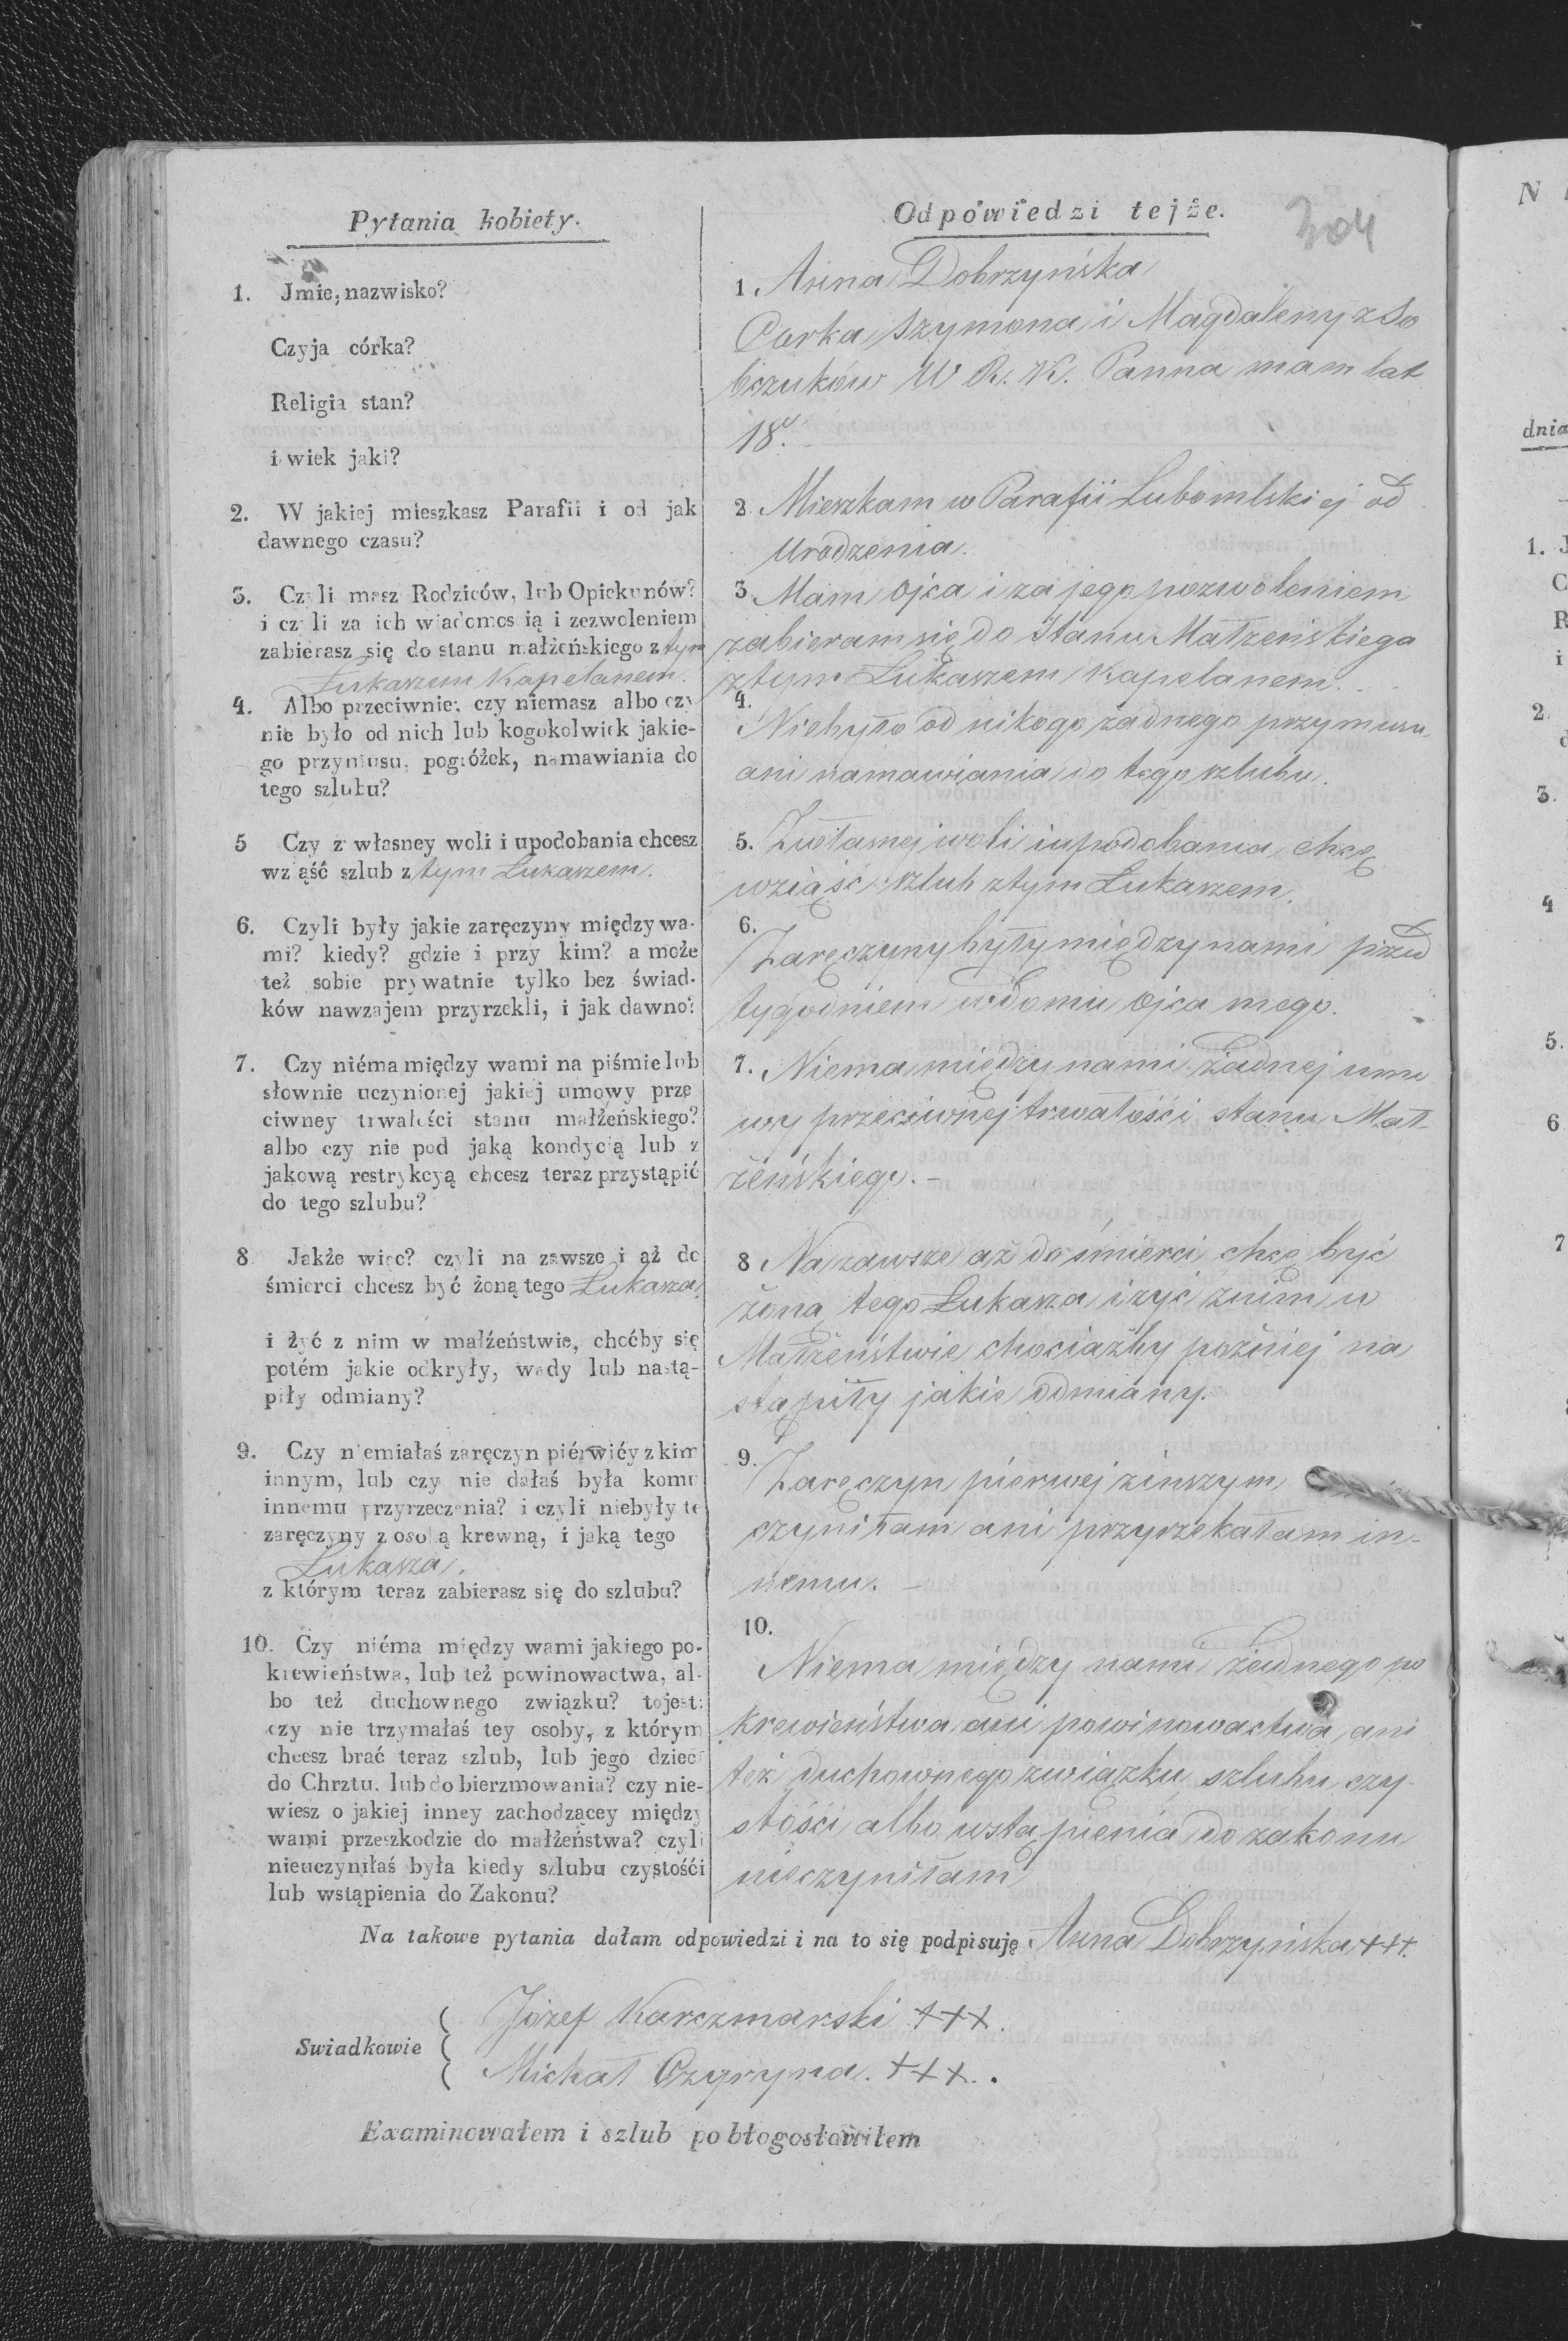 304
Pytania kobiety.
1. Jmie, nazwisko?
Czyja córka?
Religia stan?
i wiek jaki?
2. W jakiej mieszkasz Parafii i od jak
dawnego czasu?
3. Czyli masz Rodziców, lub Opiekunów?
i czyli za ich wiadomos ią i zezwoleniem
zabierasz się do stanu małżeńskiego z tym
Łukaszem Kapelanem.
4. Albo przeciwnie: czy niemasz albo czy
nie było od nich lub kogokolwiek jakie-
go przymusu, pogróżek, namawiania do
tego szlubu?
5 Czy z własney woli i upodobania chcesz
wziąść szlub z tym Łukaszem.
6. Czyli były jakie zaręczyny między wa-
mi? kiedy? gdzie i przy kim? a może
też sobie prywatnie tylko bez świad-
ków nawzajem przyrzekli, i jak dawno?
7. Czy niéma między wami na piśmie lub
słownie uczynionej jakiej umowy prze
ciwney trwałości stanu małżeńskiego?
albo czy nie pod jaką kondycią lub z
jakową restrykcyą chcesz teraz przystąpić
do tego szlubu?
8 Jakże więc? czyli na zawsze i aż do
śmierci chcesz być żoną tego Łukasza,
i żyć z nim w małżeństwie, choćby się
potém jakie odkryły, wady lub nastą-
piły odmiany?
9. Czy niemiałaś zaręczyn piérwićy z kim
innym, lub czy nie dałaś była komu
innemu przyrzeczenia? i czyli niebyły te
zaręczyny z osobą krewną, i jaką tego
Łukasza.
z którym teraz zabierasz się do szlubu?
10. Czy niéma między wami jakiego po-
krewieństwa, lub też powinowactwa, al-
bo też duchownego związku? tojest:
czy nie trzymałaś tey osoby, z którym
chcesz brać teraz szlub, lub jego dzieci
do Chrztu, lub do bierzmowania? czy nie-
wiesz o jakiej inney zachodzącey między
wami przeszkodzie do małżeństwa? czyli
nieuczyniłaś była kiedy szlubu czystośći
lub wstąpienia do Zakonu?
Odpowiedzi tejże.
1. Anna Dobrzyńska
Corka Szymona i Magdaleny z So
bczuków W R. K. Panna mam lat
18.
2. Mieszkam w Parafii Lubomlskiej od
Urodzenia.
3. Mam Ojca i za jego pozwoleniem
zabieram się do Stanu Małżeńskiego
z tym Łukaszem Kapelanem.
4.
Niebyło od nikogo żadnego przymusu,
ani namawiania do tego szlubu.
5. Zwłasnej woli i upodobania chcę
wziąść szlub z tym Łukaszem.
6.
Zaręczyny były między nami przed
tygodniem w domu Ojca mego.
7. Niema między nami żadnej umo
wy przeciwnej trwałości stanu Mał-
żeńskiego. -
8 Na zawsze aż do śmierci chcę być
żoną tego Łukasza i żyć z nim w
Małżeństwie chociażby poźniej na
stąpiły jakie odmiany.
9.
Zaręczyn pierwej z inszym
czyniłam ani przyrzekałam in-
nemu. -
10.
Niema między nami żadnego po
krewieństwa ani powinowactwa, ani
też duchownego związku, szlubu czy-
stości albo wstąpienia do zakonu
nieczyniłam
Na takowe pytania dałam odpowiedzi i na to się podpisuję Anna Dobrzyńska +++.
Swiadkowie
Józef Karczmarski +++.
Michał Czyryna. +++.
Examinowałem i szlub pobłogosławiłem
N
dnia
1. J
C
R
i
2.
d
3.
4
5.
6
7